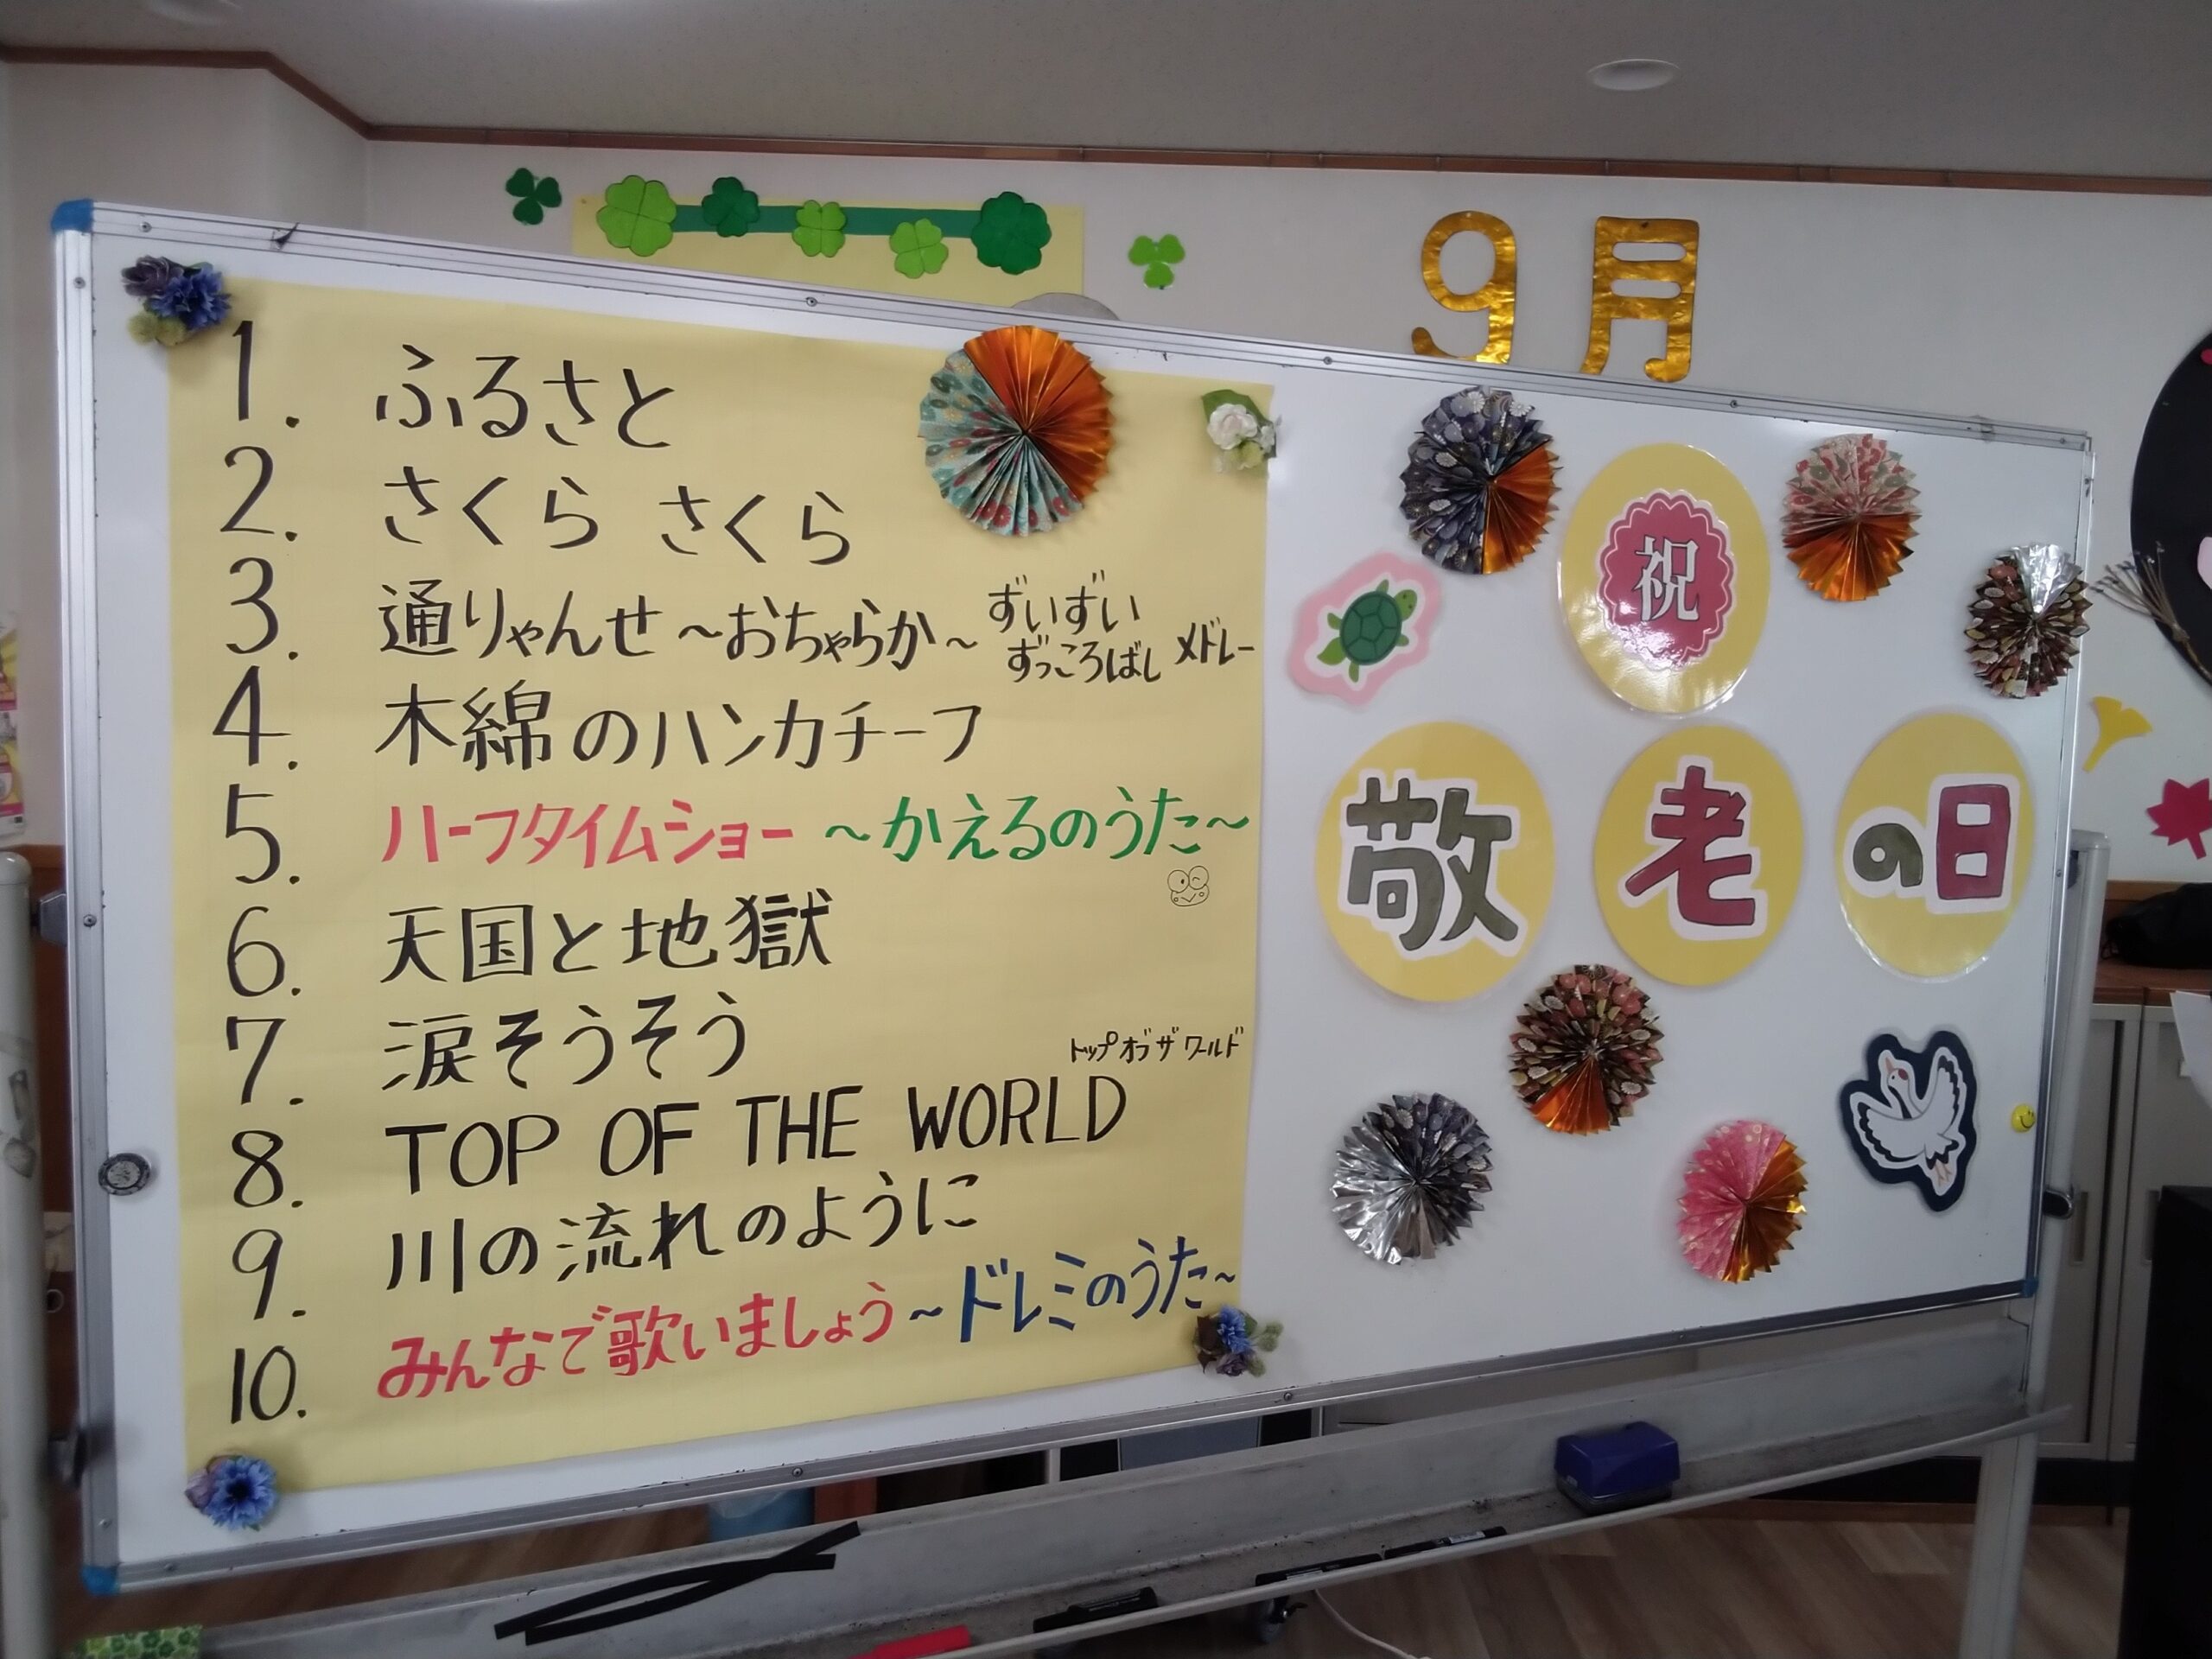 9月
1. ふるさと
2. さくら さくら
3. 通りゃんせ ～おちゃらか～ ずいずい ずっころばし メドレー
4. 木綿のハンカチーフ
5. ハーフタイムショー ～かえるのうた～
6. 天国と地獄
7. 涙そうそう
トップ オブ ザ ワールド
8. TOP OF THE WORLD
9. 川の流れのように
10. みんなで歌いましょう ～ドレミのうた～
祝
敬老の日